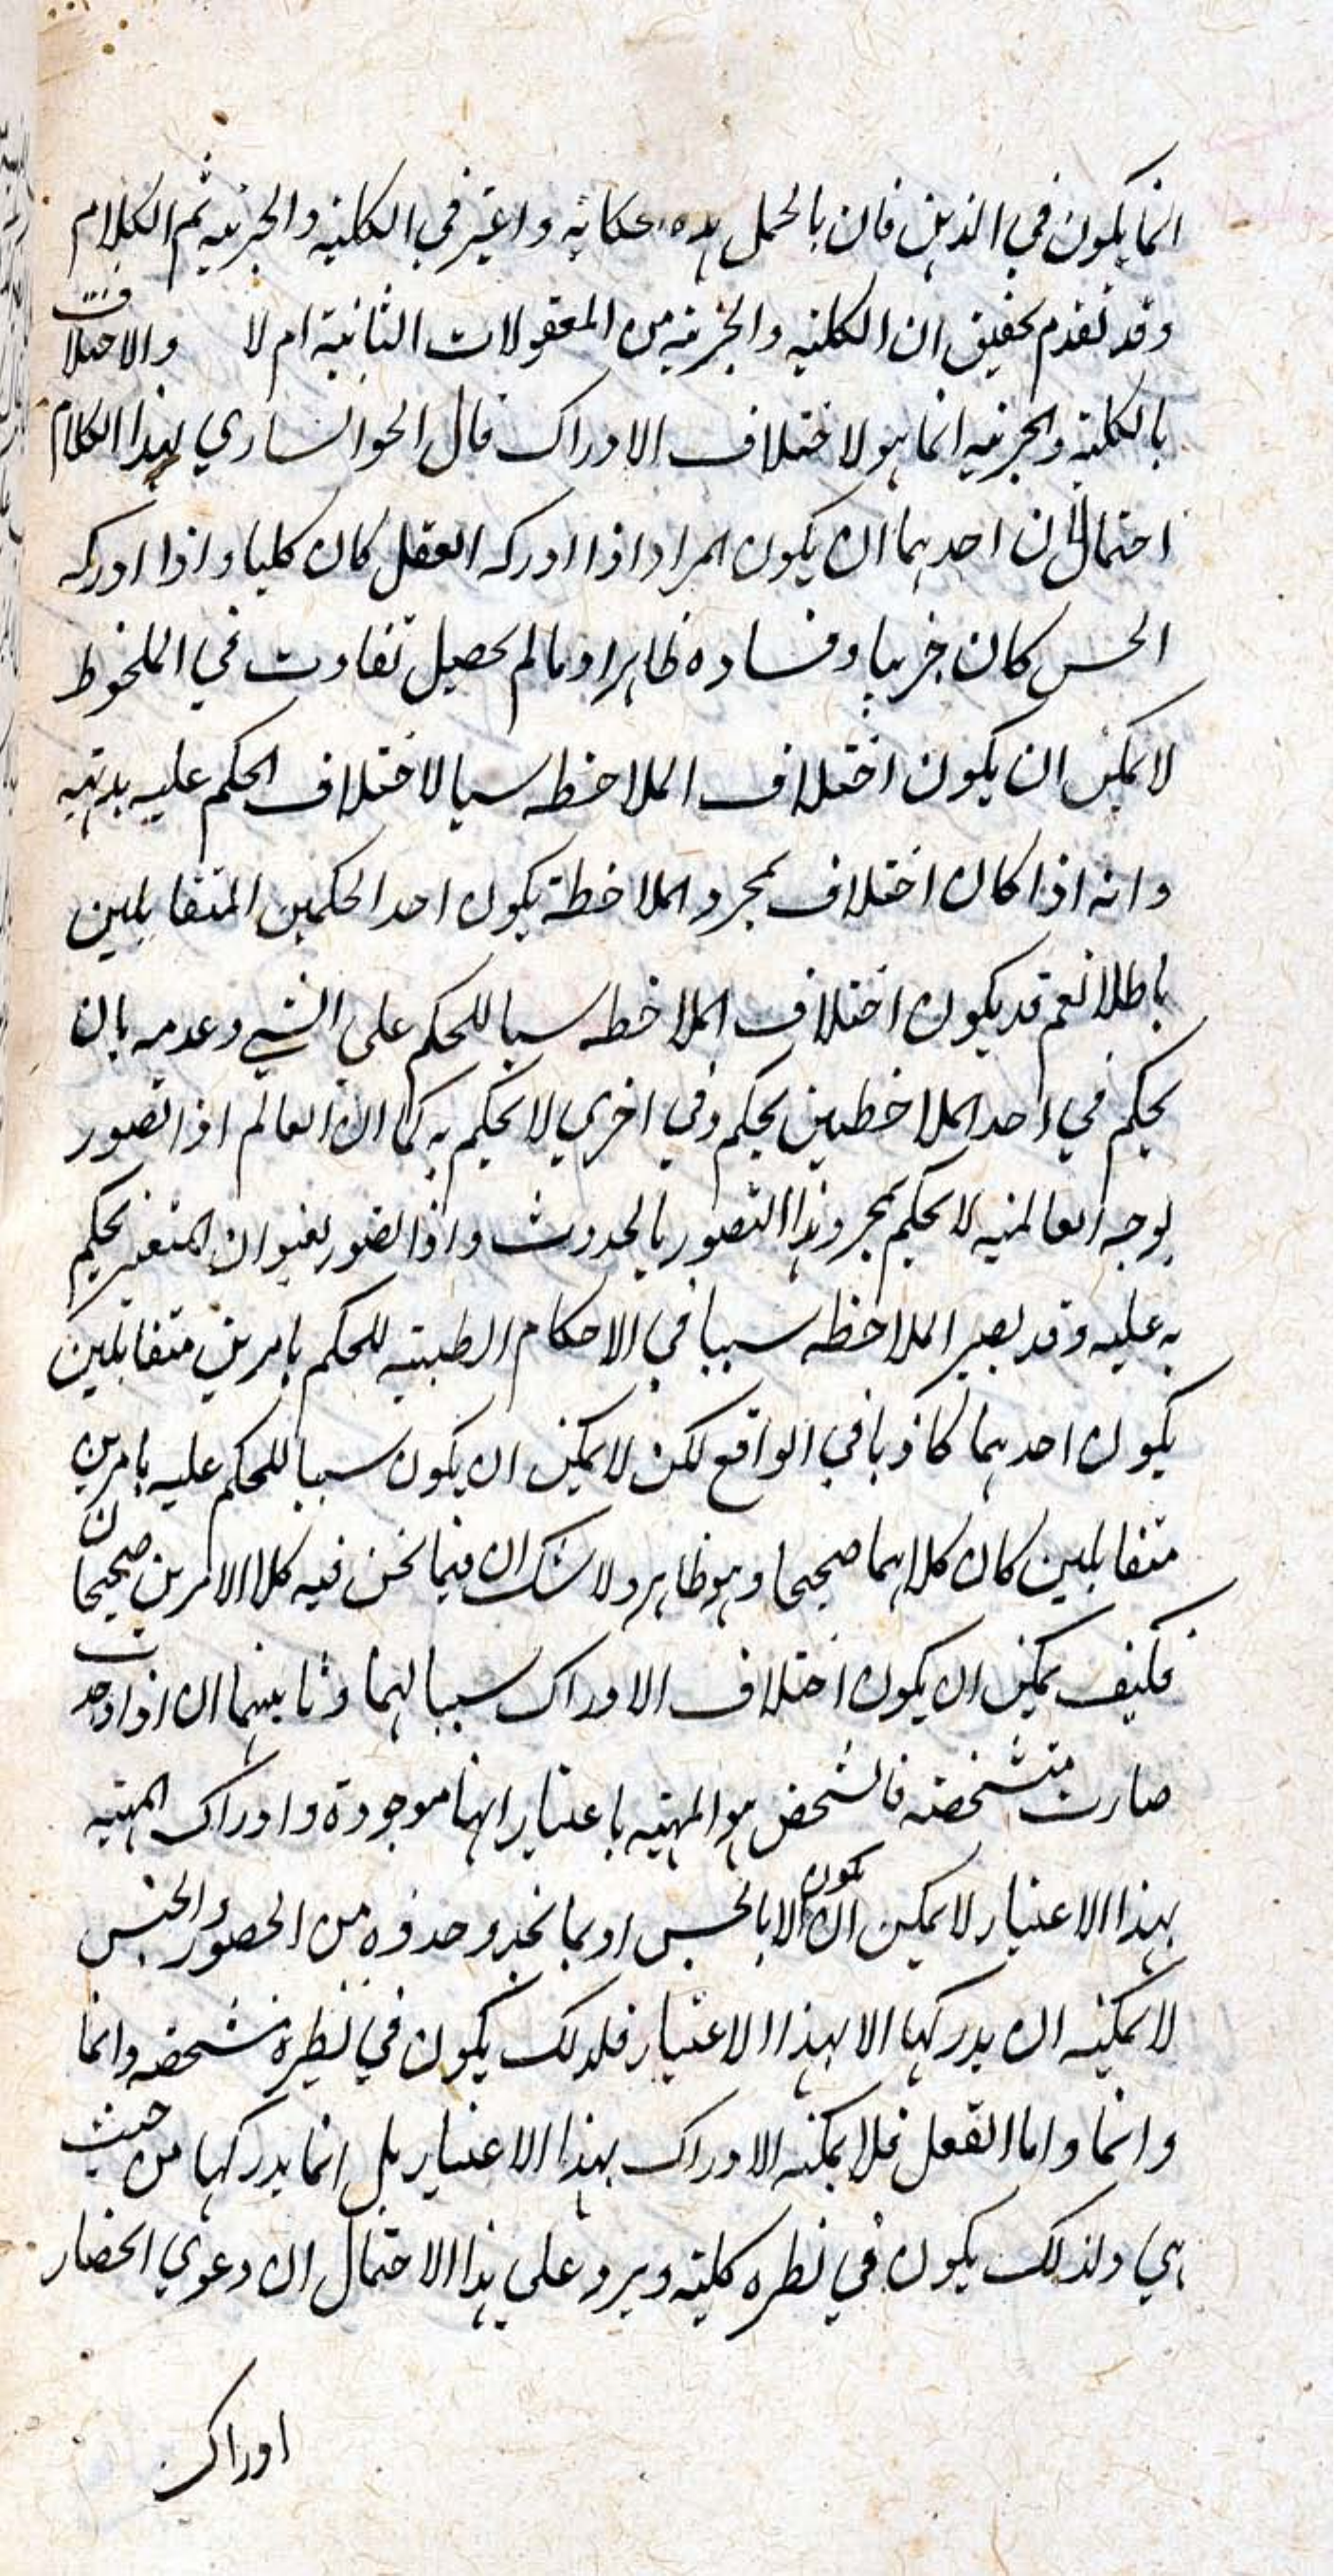 انما يكون في الذهن فان بالحمل هذه حكاية واعتبر في الكلية والجزئية ثم الكلام
وقد تقدم تحقيق ان الكلية والجزئية من المعقولات الثانية ام لا والاختلافت
بالكلية والجزئية انما هو لاختلاف الادراك قال الخوانساري لهذا الكلام
احتمالان احدهما ان يكون المراد اذا ادركه العقل كان كليا واذا ادركه
الحس كان جزيا وفساده ظاهر اذ ما لم يحصل تفاوت في الملحوظ
لا يمكن ان يكون اختلاف الملاحظه سببا لاختلاف الحكم عليه بديهيه
وانه اذا كان اختلاف بمجرد الملاحظة يكون احد الحكمين المتقابلين
باطلا نعم قد يكون اختلاف الملاحظه سببا للحكم على الشيء وعدمه بان
يحكم في احد الملاحظتين بحكم وفي اخرى لا يحكم به كما ان العالم اذا تصور
بوجه العالميه لا يحكم بمجرد هذا التصور بالحدوث واذا تصور بعنوان المتغير يحكم
به عليه وقد يصير الملاحظه سببا في الاحكام الظنية للحكم بامرين متقابلين
يكون احدهما كاذبا في الواقع لكن لا يمكن ان يكون سببا للحكم عليه بامرين
متقابلين كان كلاهما صحيحا وهو ظاهر ولا شك ان فيما نحن فيه كلا الامرين صحيحان
فكيف يمكن ان يكون اختلاف الادراك سببا لهما وثانيهما ان اذا وجدت
صارت متشخصه فالشخص هو المهيه باعتبار انها موجودة وادراك المهية
بهذا الاعتبار لا يمكن ان يكون الا بالحس او بما يحذو حذوه من الحضور والحس
لا يمكنه ان يدركها الا بهذا الاعتبار فلذلك يكون في نظره متشخصه وانما
وانما واما العقل فلا يمكنه الادراك بهذا الاعتبار بل انما يدركها من حيث
هي ولذلك يكون في نظره كلية ويرد على هذا الاحتمال ان دعوى انحصار
ادراك